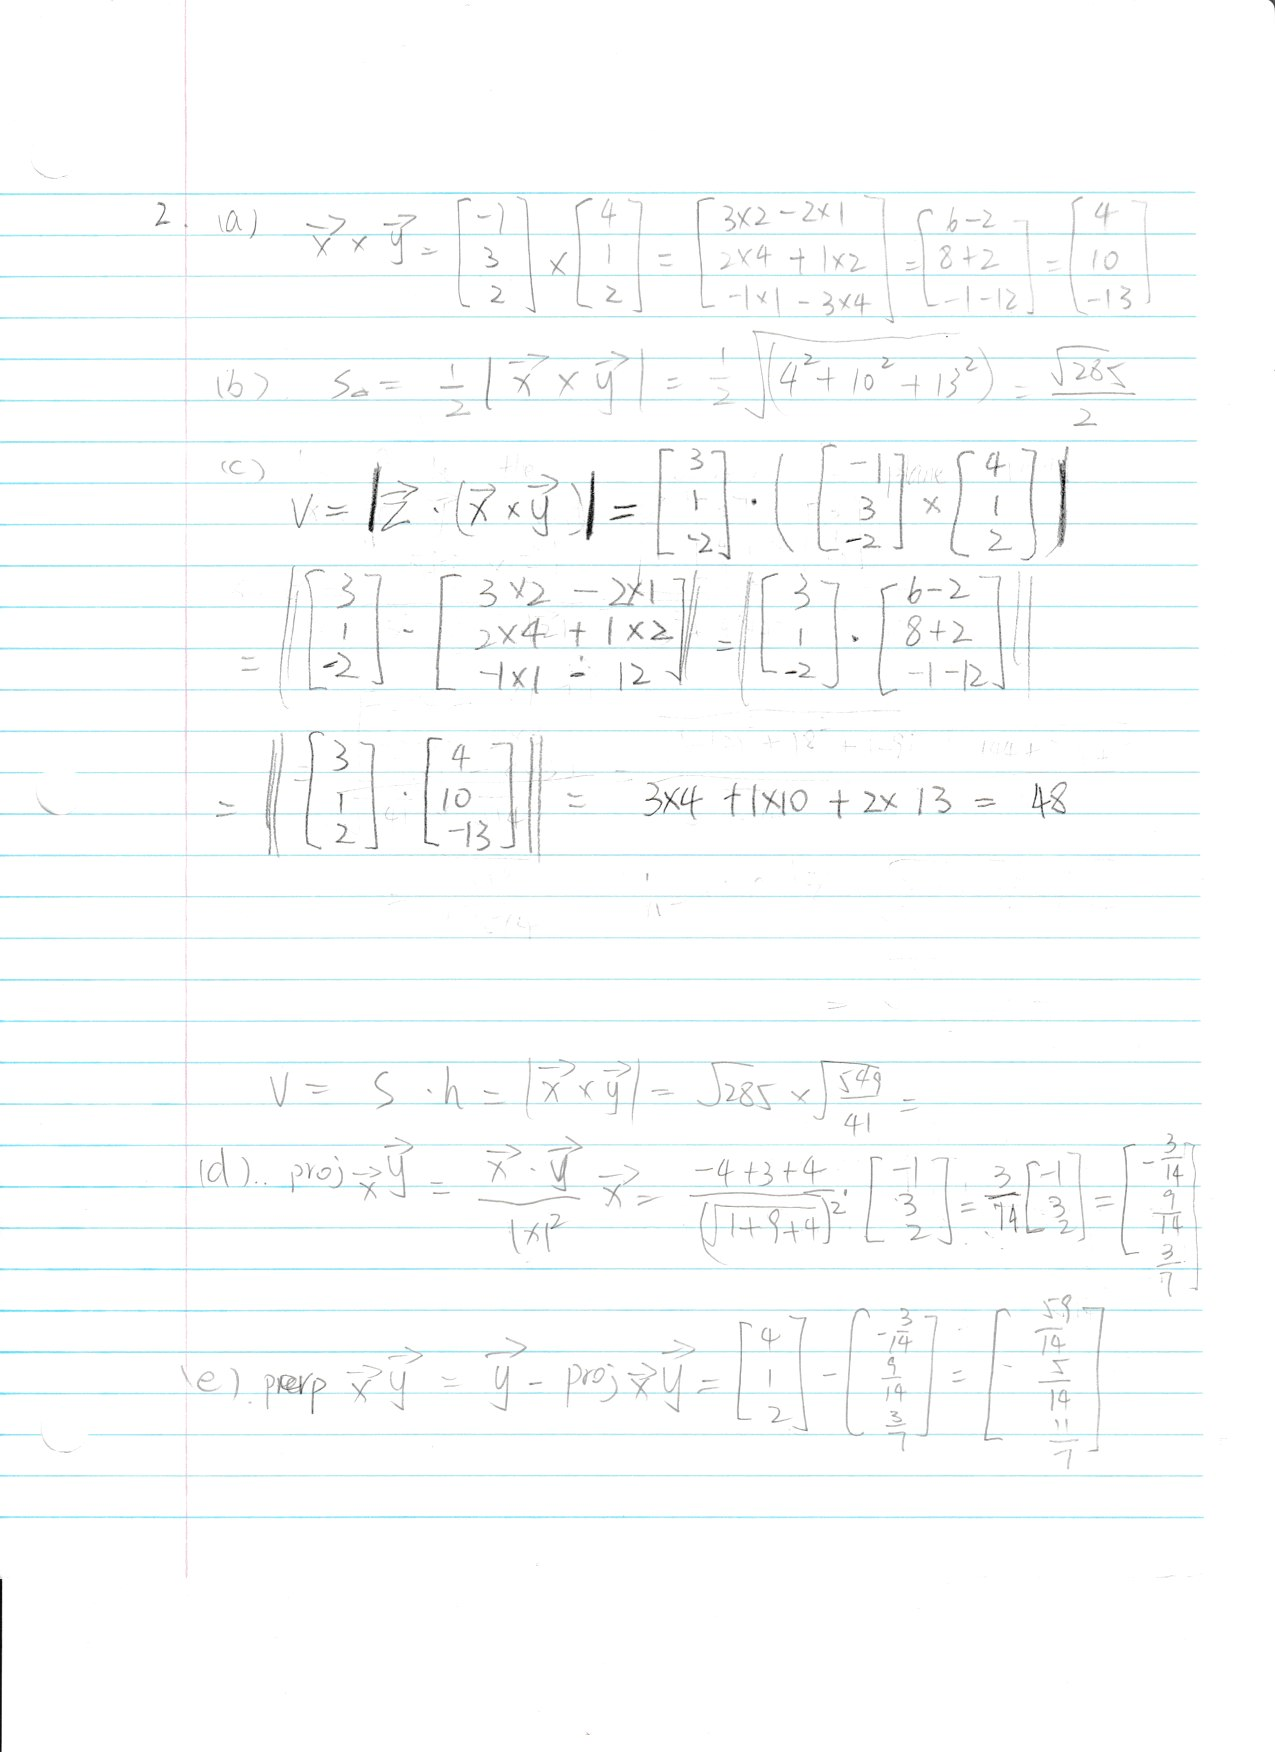 2. (a) x⃗ × y⃗ = [-1 3 2] × [4 1 2] = [3×2 - 2×1 2×4 + 1×2 -1×1 - 3×4] = [6-2 8+2 -1-12] = [4 10 -13]
(b) S△ = 1/2 |x⃗ × y⃗| = 1/2 √(4² + 10² + 13²) = √285/2
(c)
V = |z⃗ · (x⃗ × y⃗)| = [3 1 -2] · ([-1 3 -2] × [4 1 2])|
= ||[3 1 -2] · [3×2 - 2×1 2×4 + 1×2 -1×1 - 12]|| = ||[3 1 -2] · [6-2 8+2 -1-12]||
= ||[3 1 2] · [4 10 -13]|| = 3×4 + 1×10 + 2×13 = 48
V = S · h = |x⃗ × y⃗| = √285 × √(549/41) =
(d).. proj x⃗ y⃗ = (x⃗ · y⃗)/|x|² x⃗ = (-4+3+4)/(√(1+9+4))² · [-1 3 2] = 3/14 [-1 3 2] = [-3/14 9/14 3/7]
(e). perp x⃗ y⃗ = y⃗ - proj x⃗ y⃗ = [4 1 2] - [-3/14 9/14 3/7] = [59/14 - 5/14 11/7]